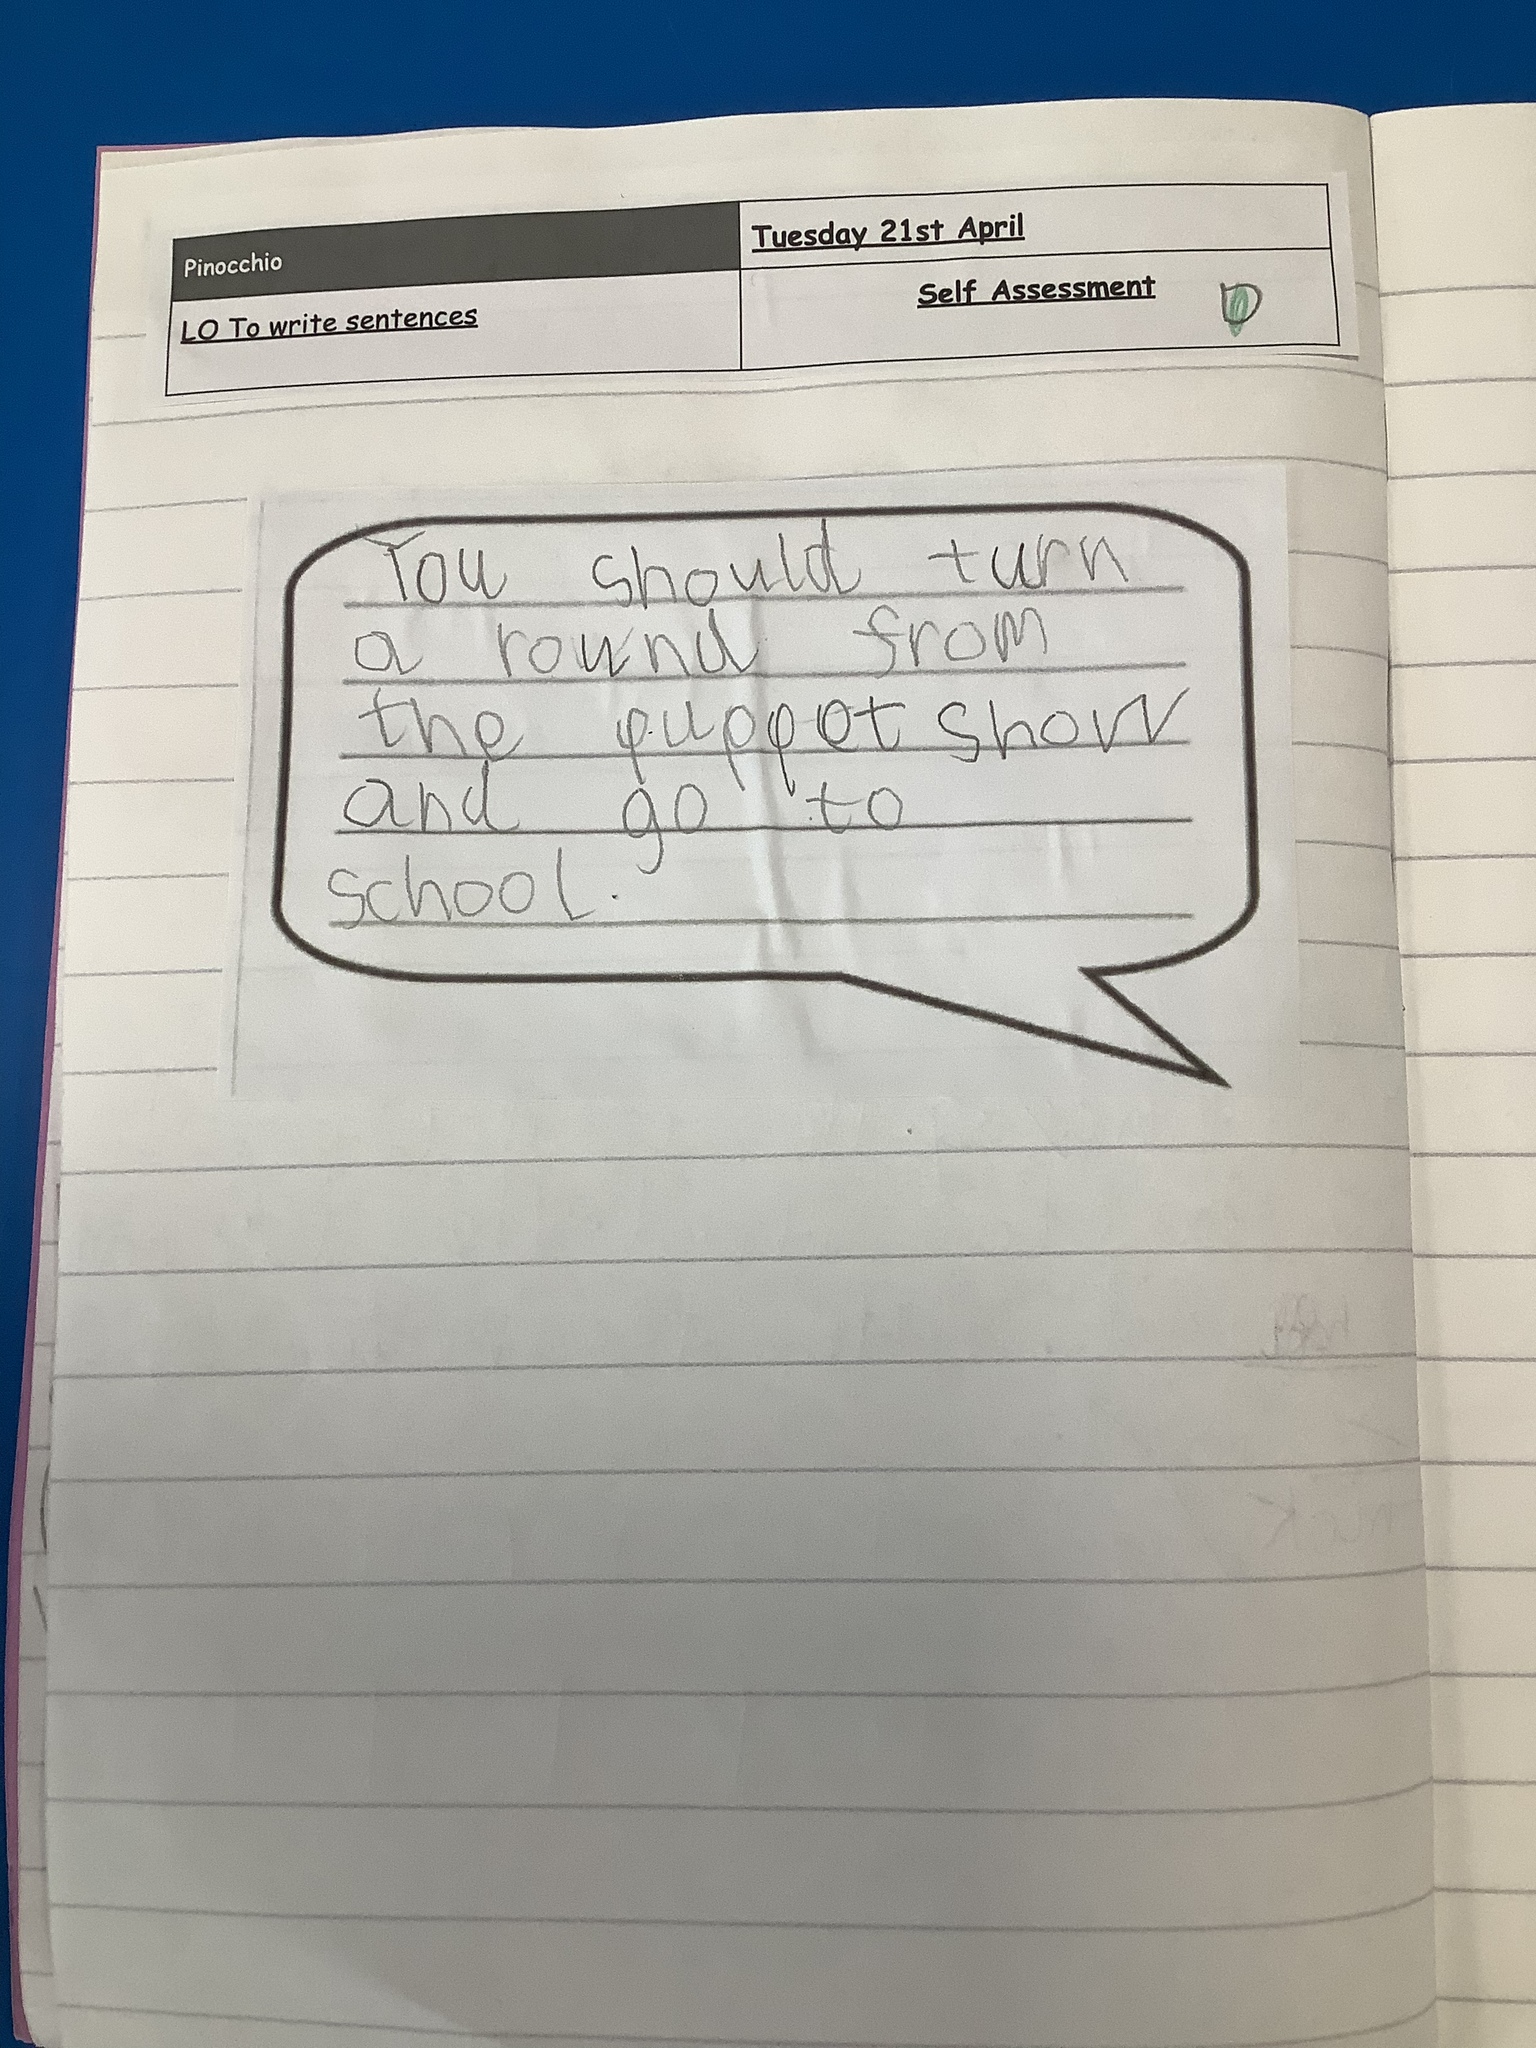 Pinocchio
Tuesday 21st April
LO To write sentences
Self Assessment
You should turn
a round from
the puppet show
and go to
school.